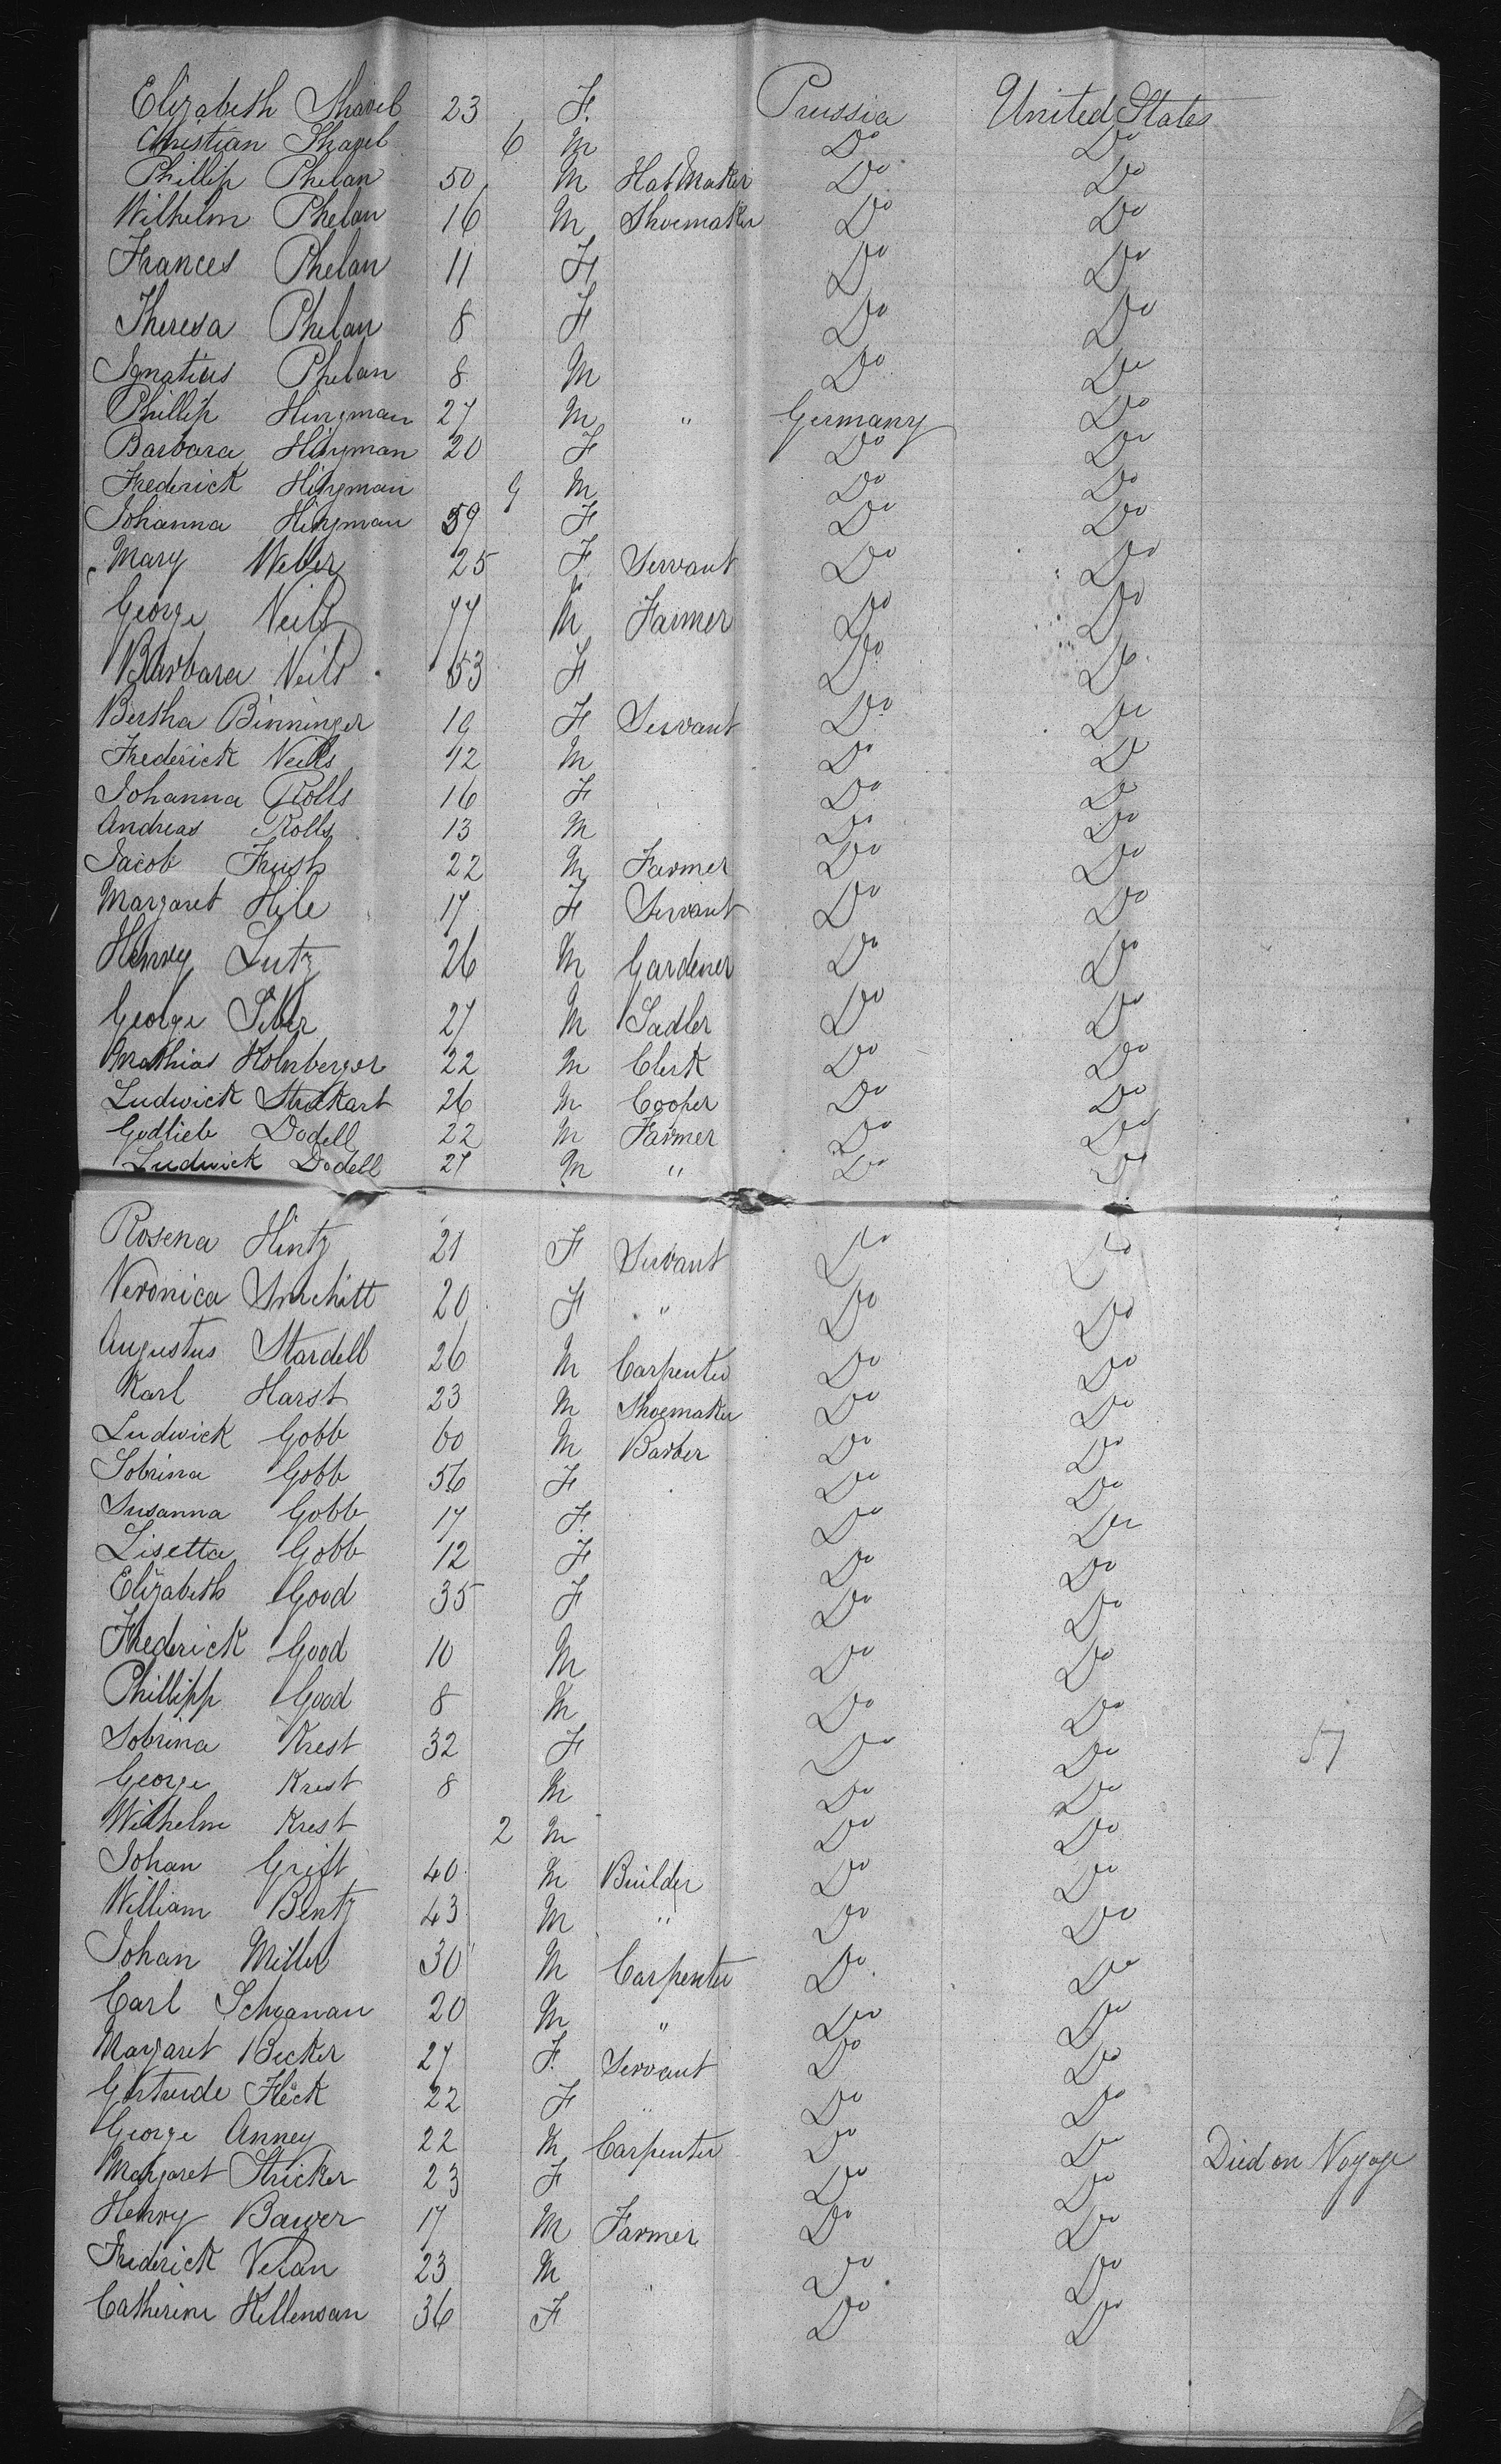 Elizabeth Shareb 23 F. Prussia United States
Christian Shareb 6 M Do Do
Phillip Phelan 50 M HatMaker Do Do
Wilhelm Phelan 16 M Shoemaker Do Do
Frances Phelan 11 F Do Do
Theresa Phelan 8 F Do Do
Ignatius Phelan 8 M Do Do
Phillip Hingman 27 M " Germany Do
Barbara Hingman 20 F Do Do
Frederick Hingman 9 M Do Do
Johanna Hingman 59 F Do Do
Mary Weber 25 F Servant Do Do
George Neils 77 M Farmer Do Do
Barbara Neils 53 F Do Do
Bertha Binninger 19 F Servant Do Do
Frederick Neills 12 M Do Do
Johanna Rolls 16 F Do Do
Andreas Rolls 13 M Do Do
Jacob Frush 22 M Farmer Do Do
Margaret Hile 17 F Servant Do Do
Henry Lutz 26 M Gardener Do Do
George Siber 27 M Sadler Do Do
Mathias Holnberger 22 M Clerk Do Do
Ludwick Strekart 26 M Cooper Do Do
Godlieb Dodell 22 M Farmer Do Do
Ludwick Dodell 27 M " Do Do
Rosena Hintz 21 F Servant Do Do
Veronica Smchitt 20 F " Do Do
Augustus Stardell 26 M Carpenter Do Do
Karl Harst 23 M Shoemaker Do Do
Ludwick Gobb 60 M Barber Do Do
Sobrina Gobb 56 F Do Do
Susanna Gobb 17 F. Do Do
Lisetta Gobb 12 F Do Do
Elizabeth Good 35 F Do Do
Frederick Good 10 M Do Do
Phillipp Good 8 M Do Do
Sobrina Krest 32 F Do Do 57
George Krest 8 M Do Do
Wilhelm Krest 2 M Do Do
Johan Grift 40 M Builder Do Do
William Bentz 43 M " Do Do
Johan Miller 30 M Carpenter Do Do
Carl Schoanan 20 M " Do Do
Margaret Becker 27 F. Servant Do Do
Gertrude Fleck 22 F " Do Do
George Anney 22 M Carpenter Do Do Died on Voyage
Margaret Stricker 23 F Do Do
Henry Bawer 17 M Farmer Do Do
Frederick Vesan 23 M " Do Do
Catherine Hellensan 36 F Do Do